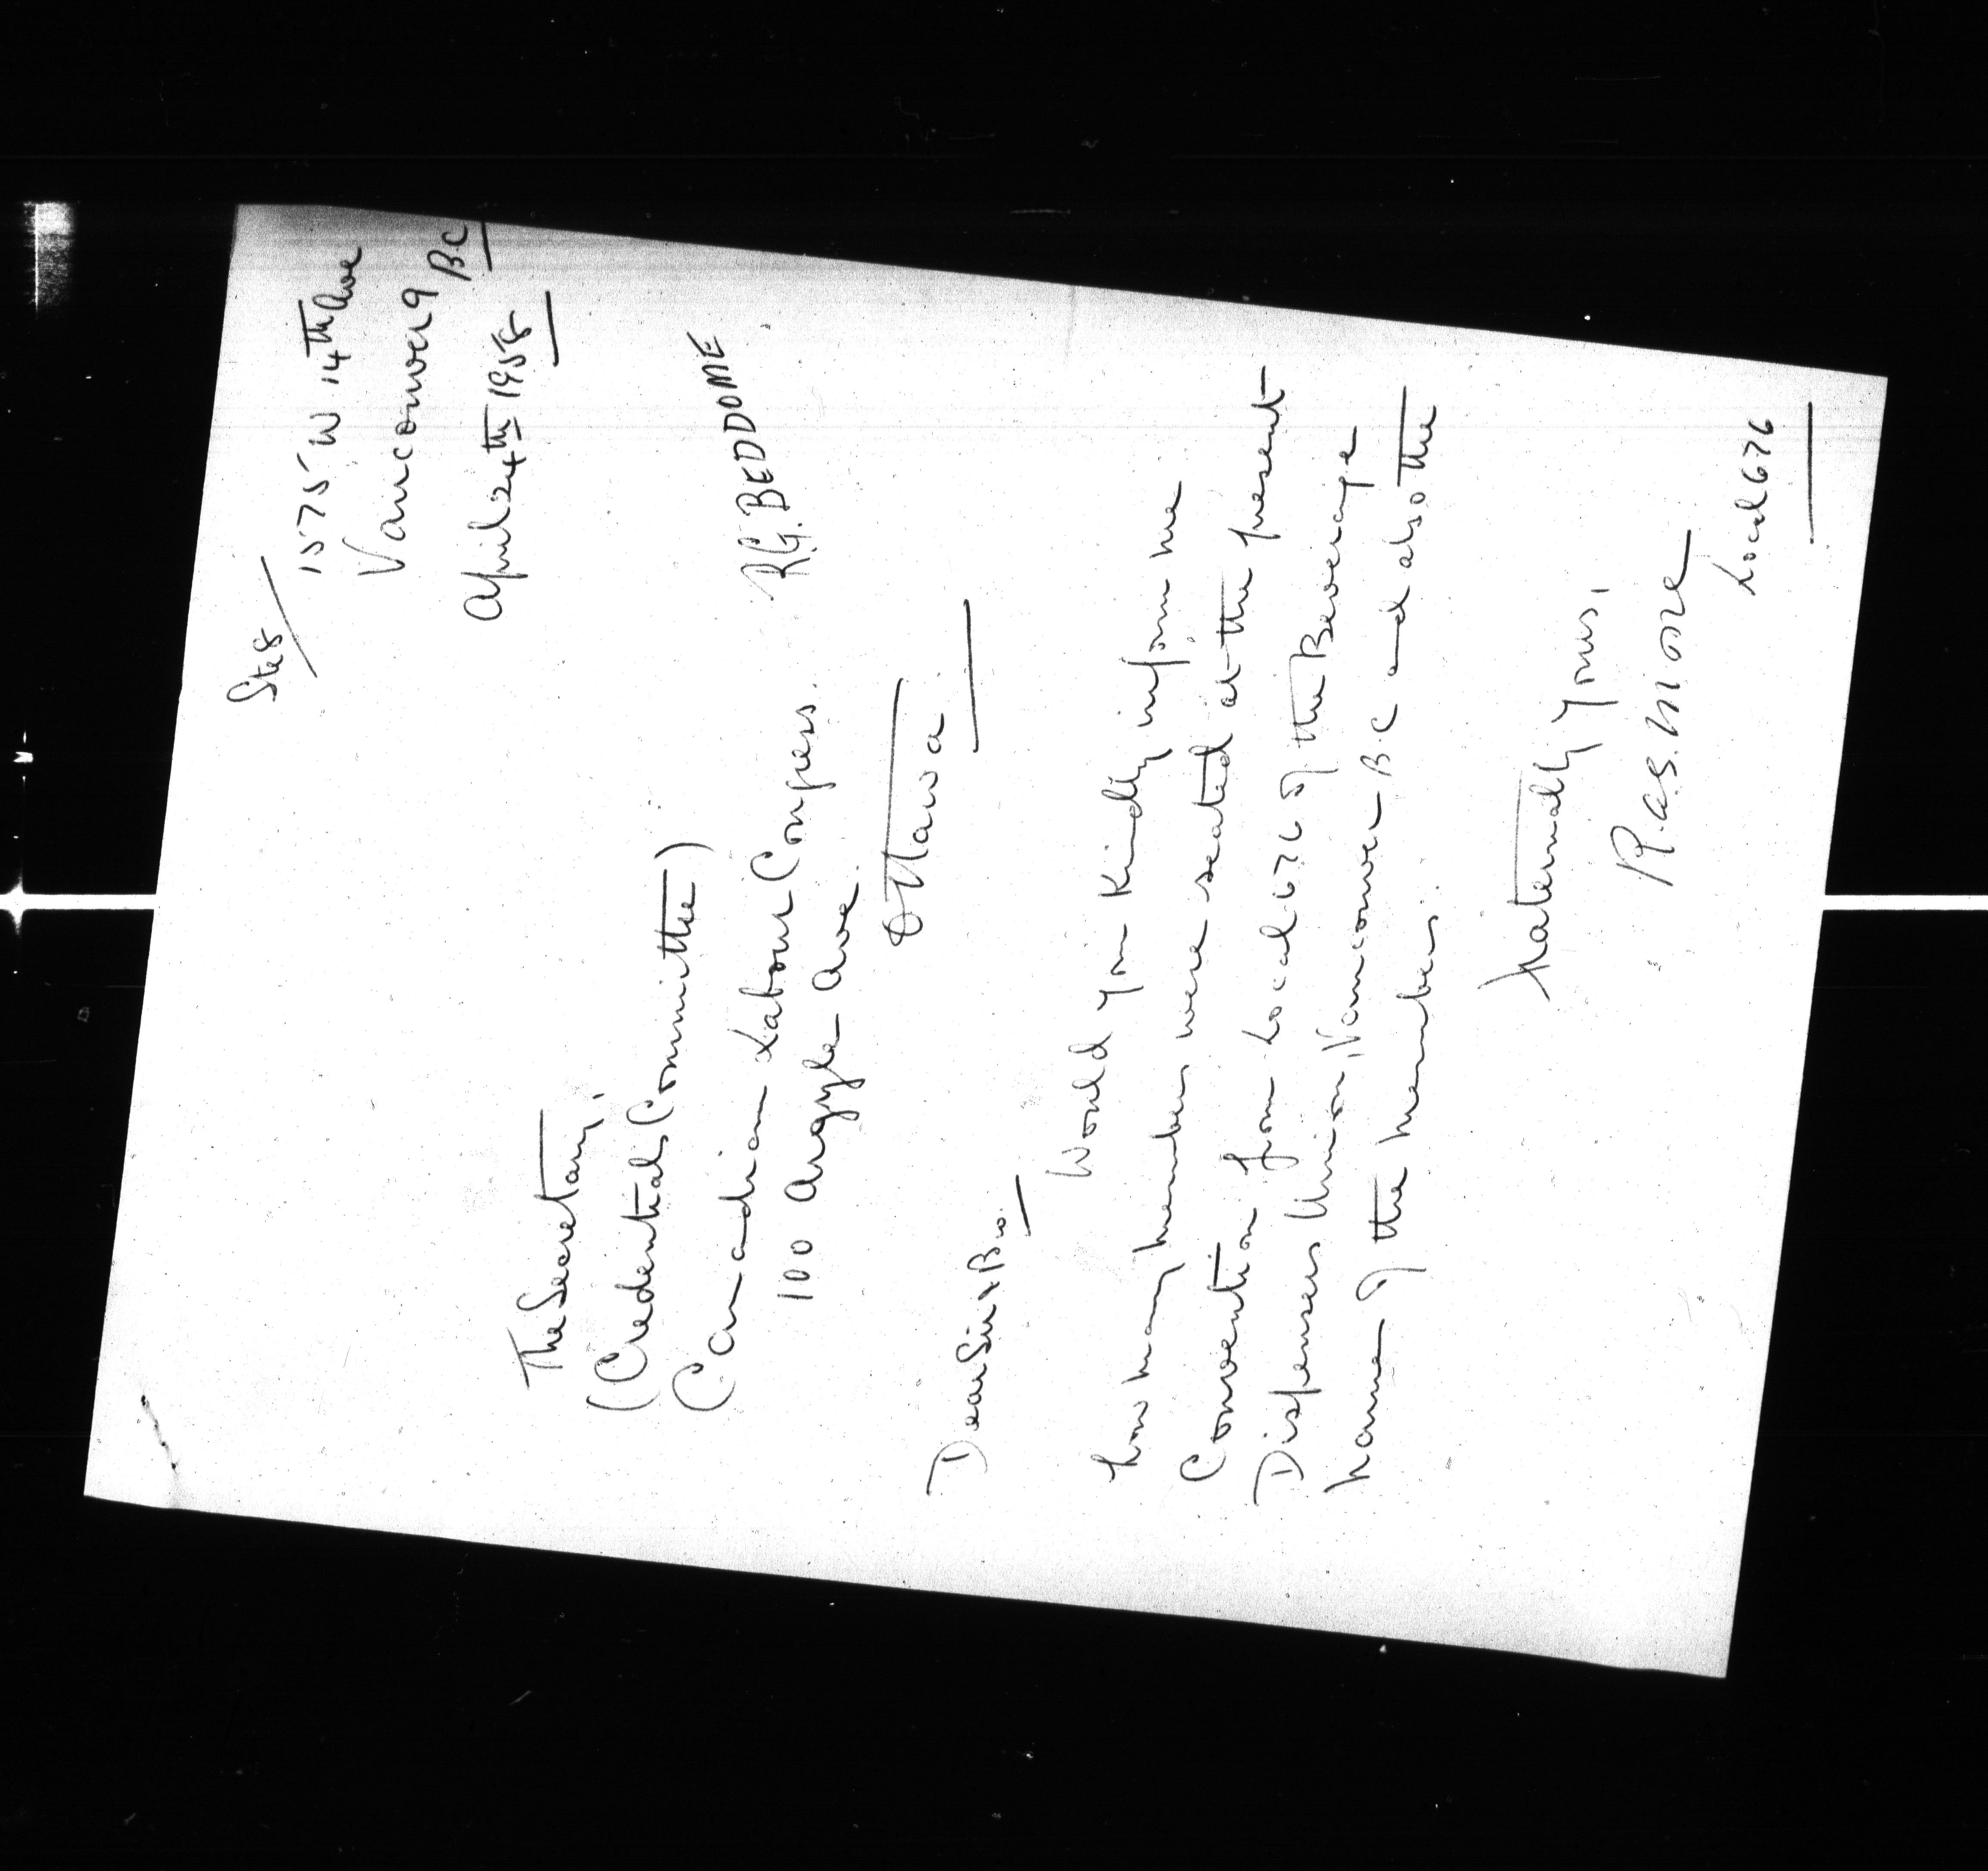 Ste 8
1575 W 14th Ave
Vancouver 9 B.C
April 24th 1958
The Secretary,
(Credentials Committee)
Canadian Labour Congress.
R.G. BEDDOME
100 Argyle Ave.
Ottawa.
Dear Sir & Bro.
Would you kindly inform me
how many members were seated at the present
Convention from Local 676 of the Beverage
Dispensers Union, Vancouver B.C and also the
name of the members.
Fraternally yours,
Local 676